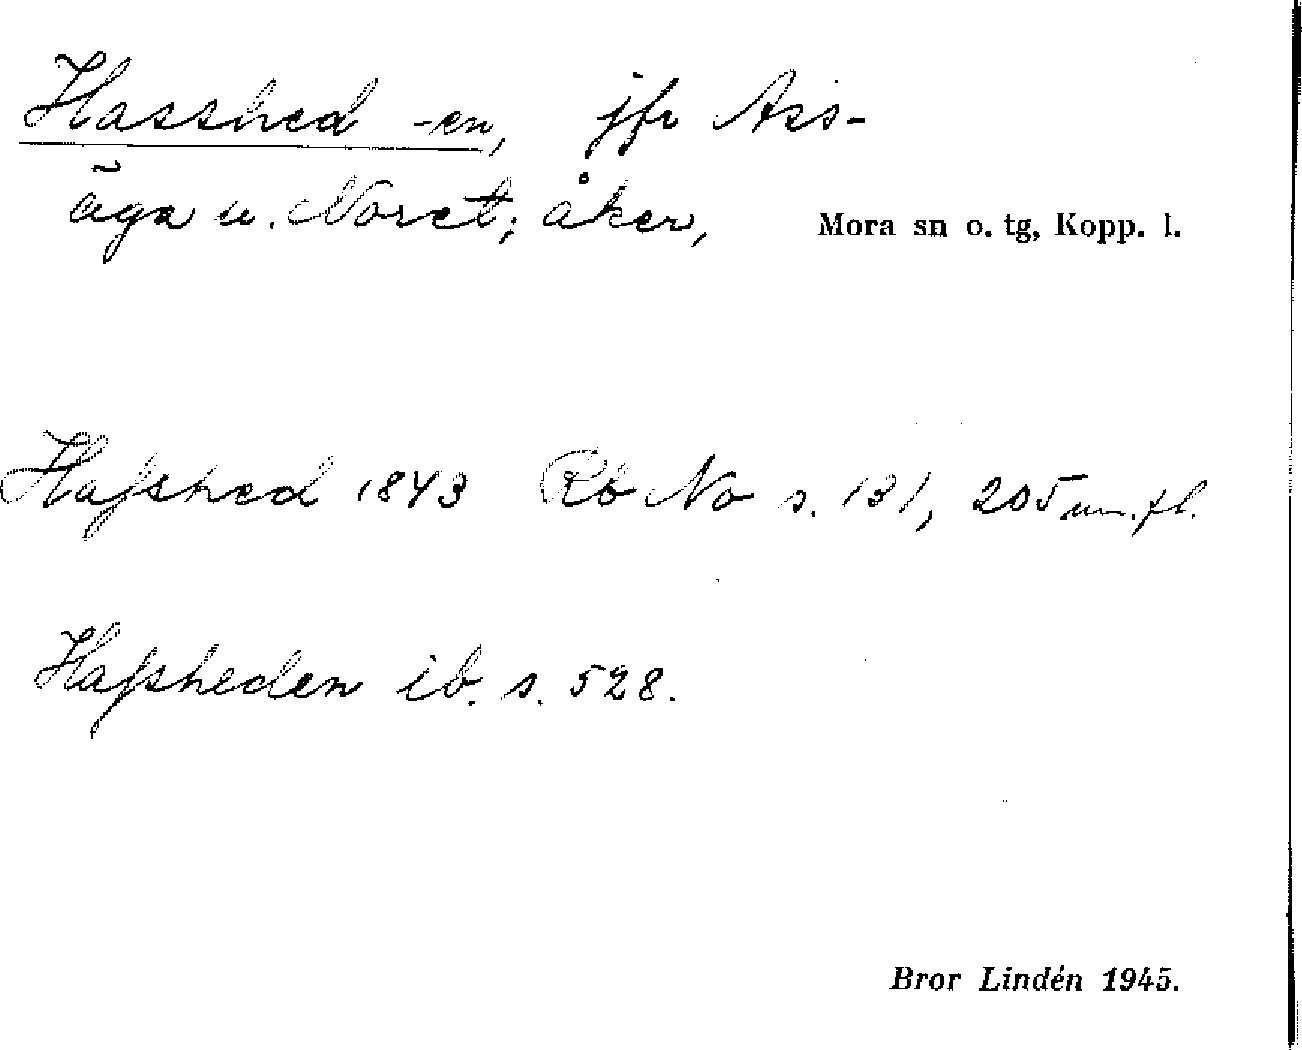 Hasshed -en, jfr Ass-
äga u. Noret; åker, Mora sn o. tg, Kopp. l.
Haſshed 1843 Rb No s. 131, 205 m. fl.
Haſsheden ib. s. 528.
Bror Lindén 1945.